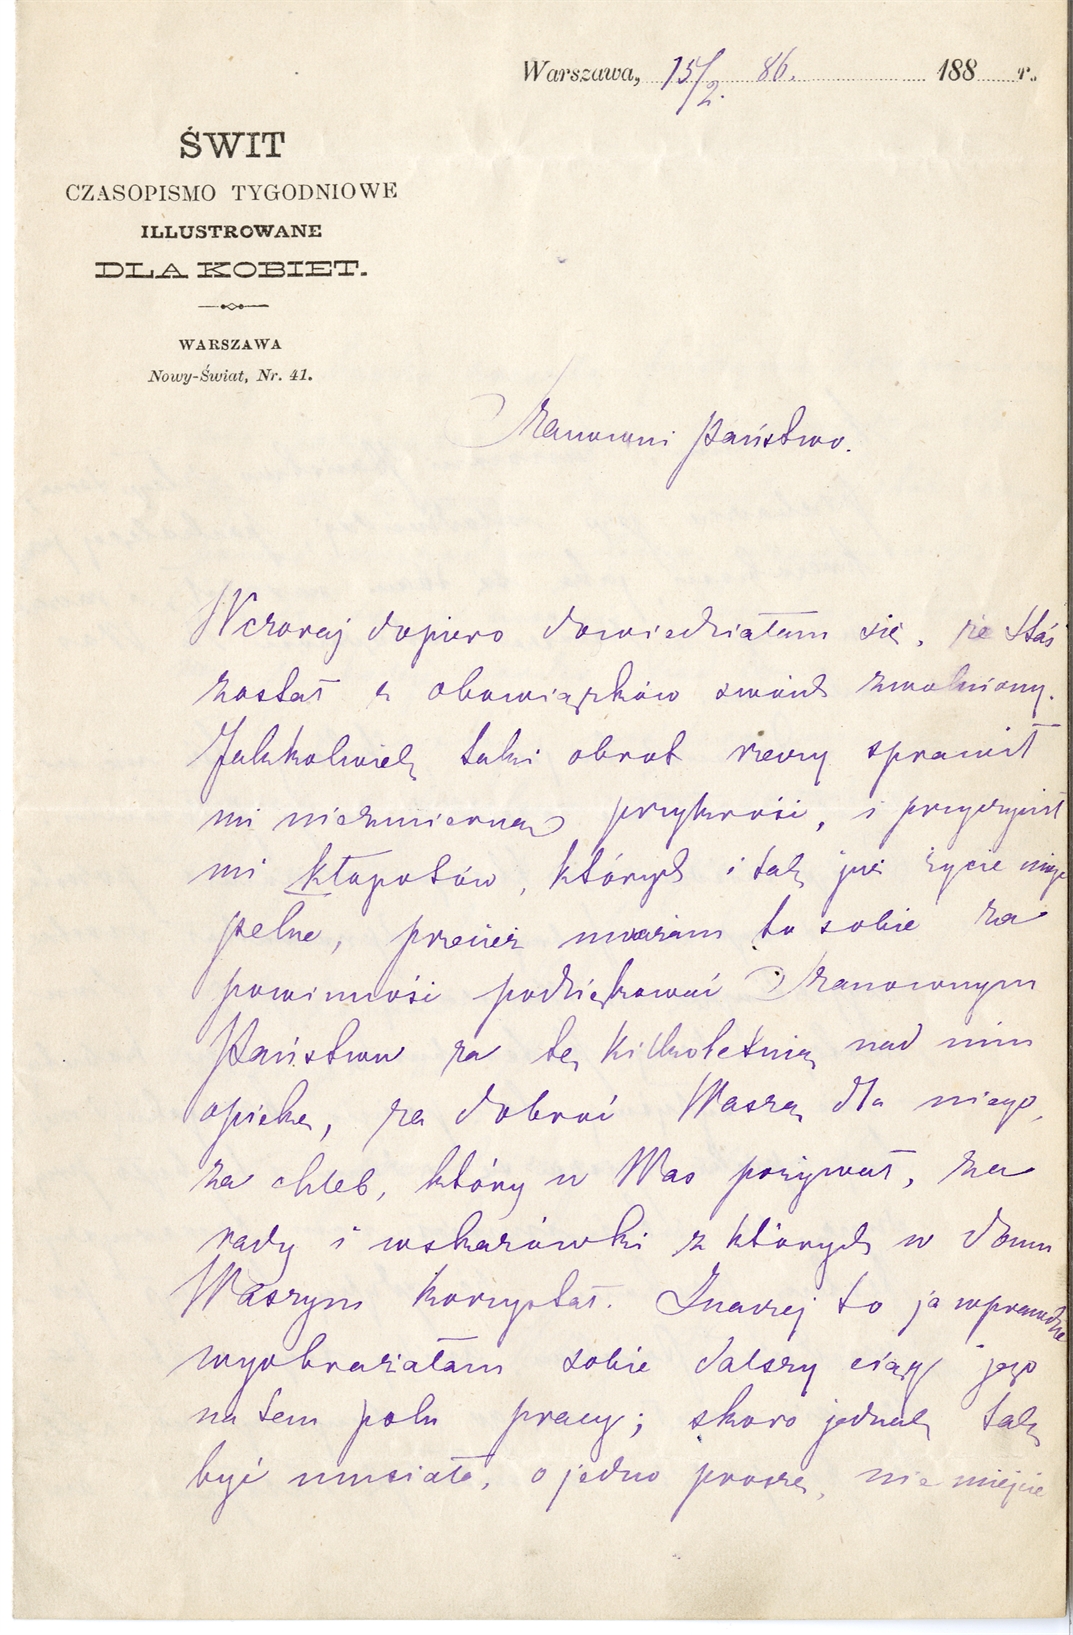 Warszawa, 15/2. 86. 188 r.
ŚWIT
CZASOPISMO TYGODNIOWE
ILLUSTROWANE
DLA KOBIET.
WARSZAWA
Nowy-Świat, Nr. 41.
Szanowni Państwo.
Wczoraj dopiero dowiedziałam się, że Staś
został z obowiązków swoich zwolniony.
Jakkolwiek taki obrot rzeczy sprawił
mi niezmierną przykrość, i przyczynił
mi kłopotów, których i tak już życie moje
pełne, przecież uważam to sobie za
powinność podziękować Szanownym
Państwu za tę kilkoletnią nad nim
opiekę, za dobroć Waszą dla niego,
za chleb, który u Was pożywał, za
rady i wskazówki z których w domu
Waszym korzystał. Inaczej to ja wprawdzie
wyobrażałam sobie dalszy ciąg jego
na tem polu pracy; skoro jednak tak
być musiało, o jedno proszę, nie miejcie